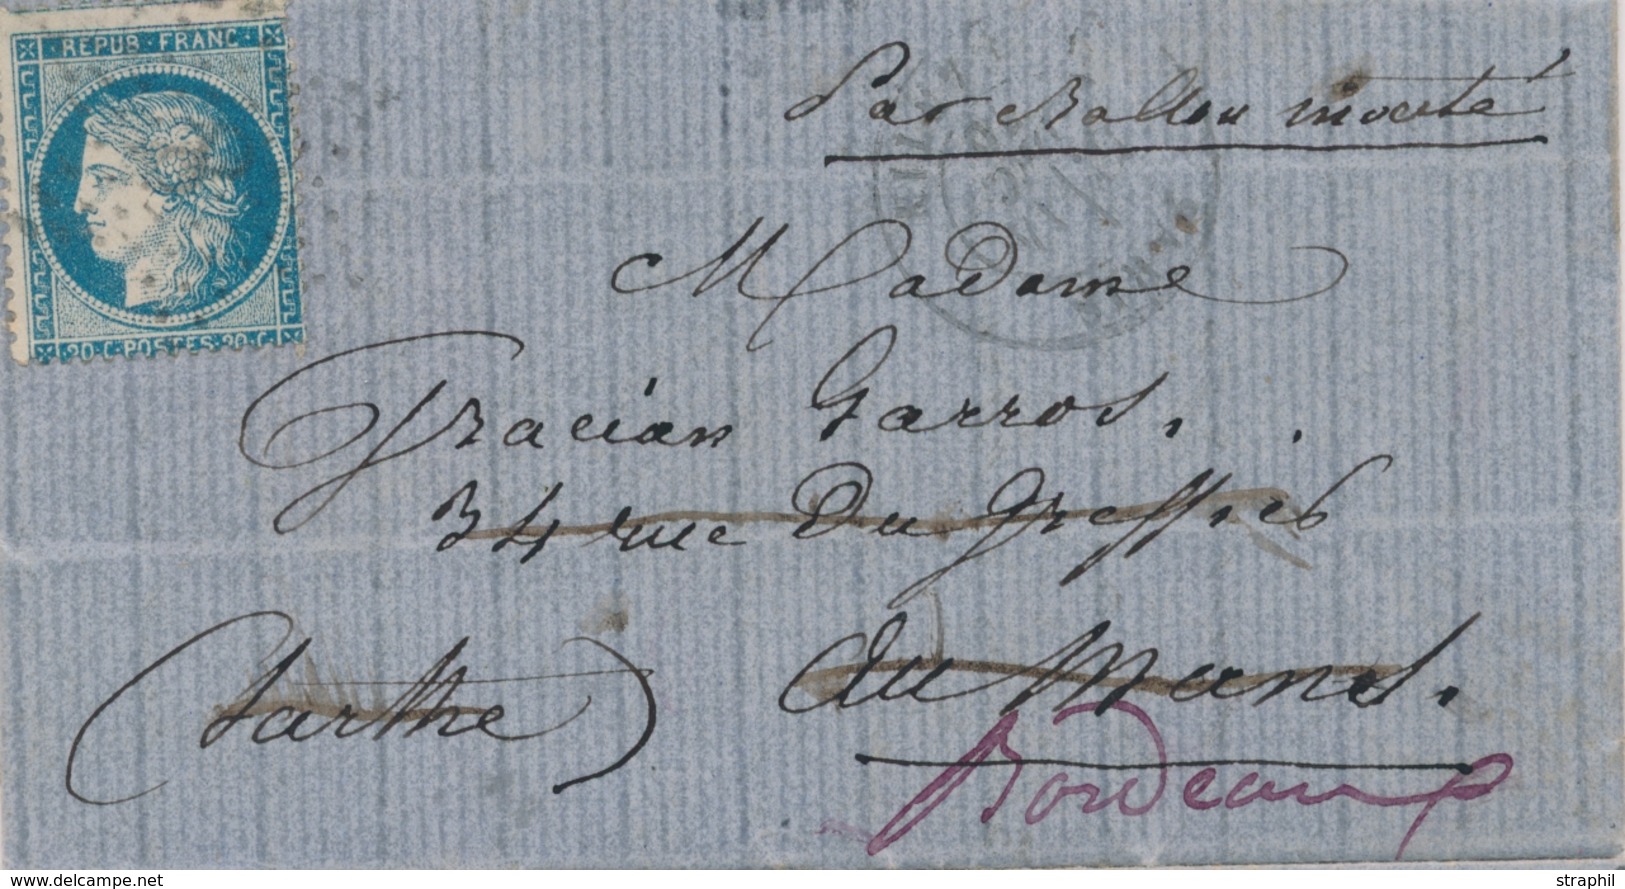 REPUB · FRANC
20 · C · POSTES · 20 · C
Par Ballon monté
Madame
Gracian Garros.
34 rue Du Greffier
du Mans.
(Sarthe)
Bordeaux
www.delcampe.net
straphil